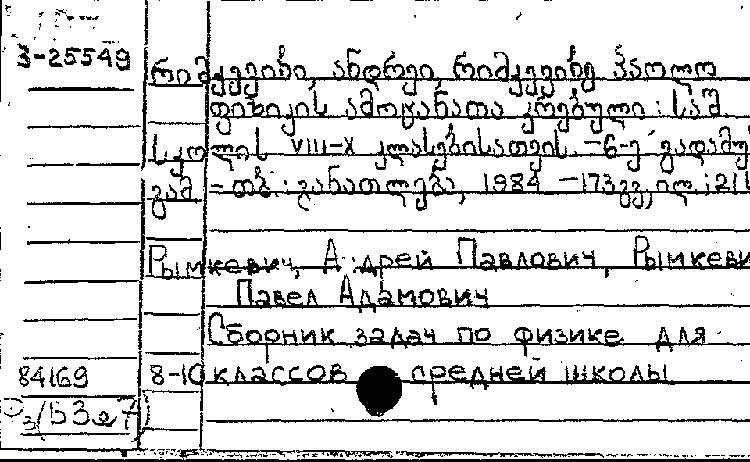 3-25549
რიმკევიჩი, ანდრეი, რიმკევიჩი, პაოლო
ფიზიკის ამოცანათა კრებული : საშ.
სკოლის VIII-X კლასებისათვის. -6-ე გადამუ
გამ. - თბ. : განათლება, 1984 -173გვ, ილ.; 21
Рымкевич, А дрей Павлович, Рымкеви
Павел Адамович
Сборник задач по физике для
84169 8-10 классов средней школы